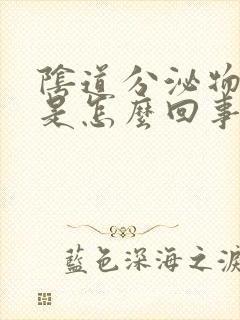 陰道分泌物
是怎麼回事
藍色深海之淚